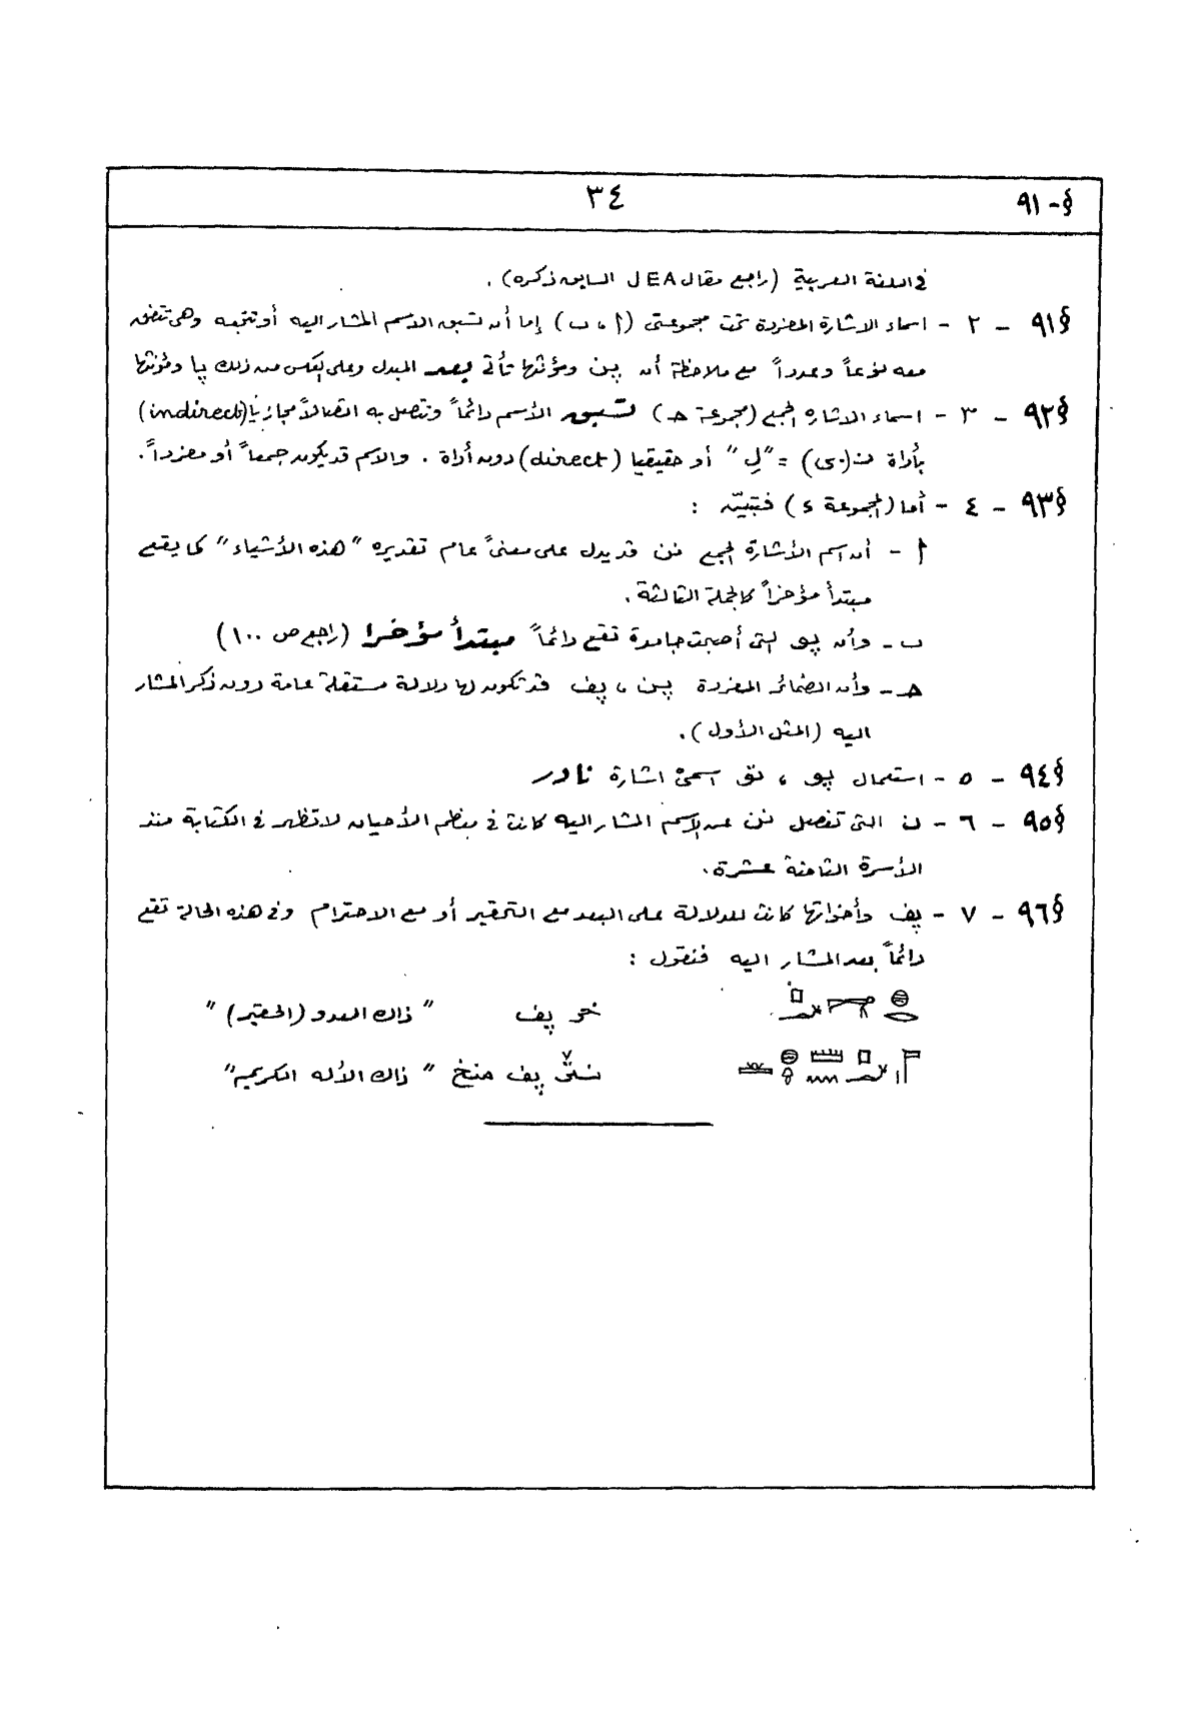 §-٩١
٣٤
في اللغة العربية (راجع مقال JEA السابق ذكره) .
§٩١ - ٢ - اسماء الاشارة المفردة تحت مجموعتى (أ ، ب) إما أن تسبق الاسم المشار اليه أو تتبعه وهى تتفق
معه نوعاً وعدداً مع ملاحظة أن پن ومؤنثها تأتى بعد المبدل وعلى العكس من ذلك پا ومؤنثها
§٩٢ - ٣ - اسماء الاشارة الجمع (مجموعة حـ) تسبق الأسم دائماً وتتصل به اتصالاً مجازيا (indirect)
بأداة ن (ى) = "لِ" أو حقيقيا (direct) دون أداة . والاسم قد يكون جمعاً أو مفرداً .
§٩٣ - ٤ - أما (المجموعة ء) فتبيّن :
أ - أن اسم الأشارة الجمع نن قد يدل على معنىً عام تقديره "هذه الأشياء" كما يقع
مبتدأ مؤخراً كالجملة الثالثة .
ب - وأن پو التى أصبحت جامدة تقع دائماً مبتدأ مؤخرا (راجع ص ١٠٠)
حـ - وأن الضمائر المفردة پن ، پف قد تكون لها دلالة مستقلة عامة دون ذكر المشار
اليه (المثل الأول) .
§٩٤ - ٥ - استعمال پو ، تو اسمىْ اشارة نادر
§٩٥ - ٦ - ن التى تفصل نن عن الاسم المشار اليه كانت في معظم الأحيان لا تظهر في الكتابة منذ
الأسرة الثامنة عشرة .
§٩٦ - ٧ - پف وأخواتها كانت للدلالة على البعد مع التحقير أو مع الاحترام وفي هذه الحالة تقع
دائماً بعد المشار اليه فنقول :
خر پف "ذاك العدو (الحقير)"
پف منخ "ذاك الأله الكريم"